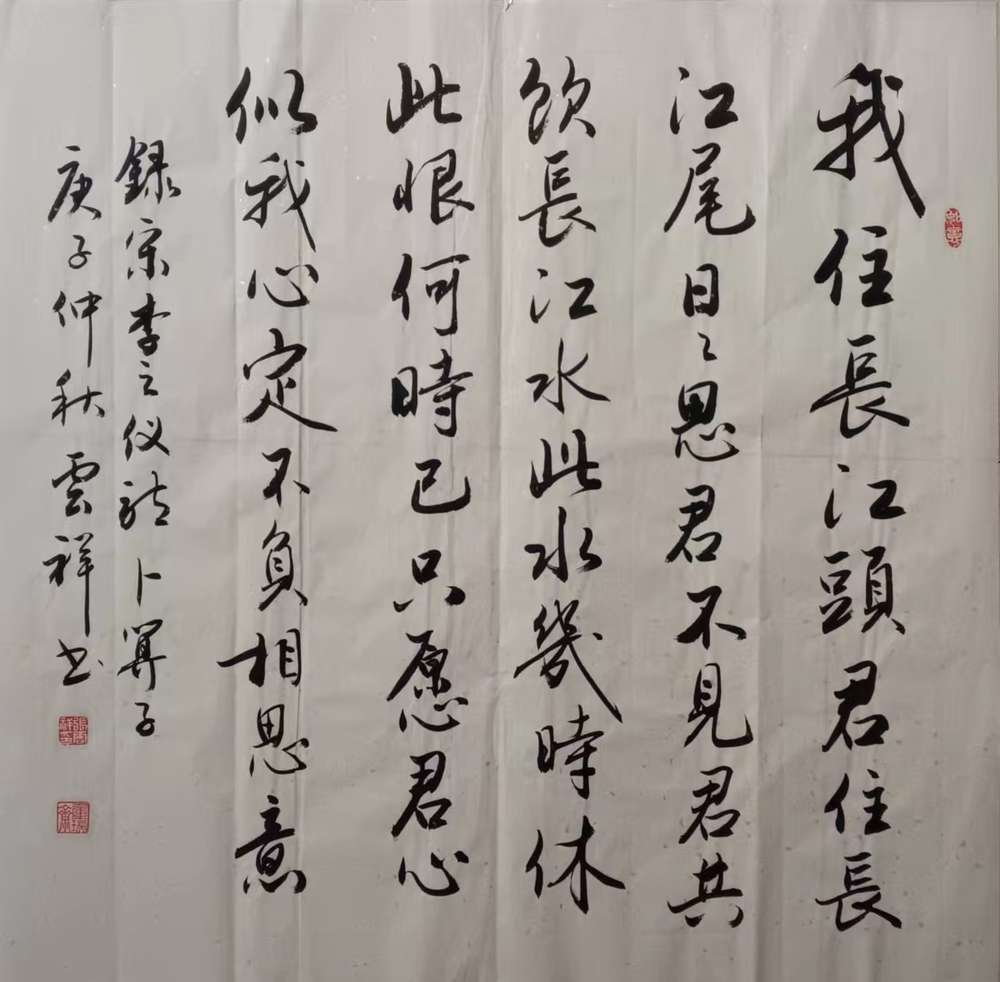 我住長江頭君住長
江尾日〻思君不見君共
飲長江水此水幾時休
此恨何時已只愿君心
似我心定不負相思意
録宋李之仪詞卜算子
庚子仲秋雲祥书